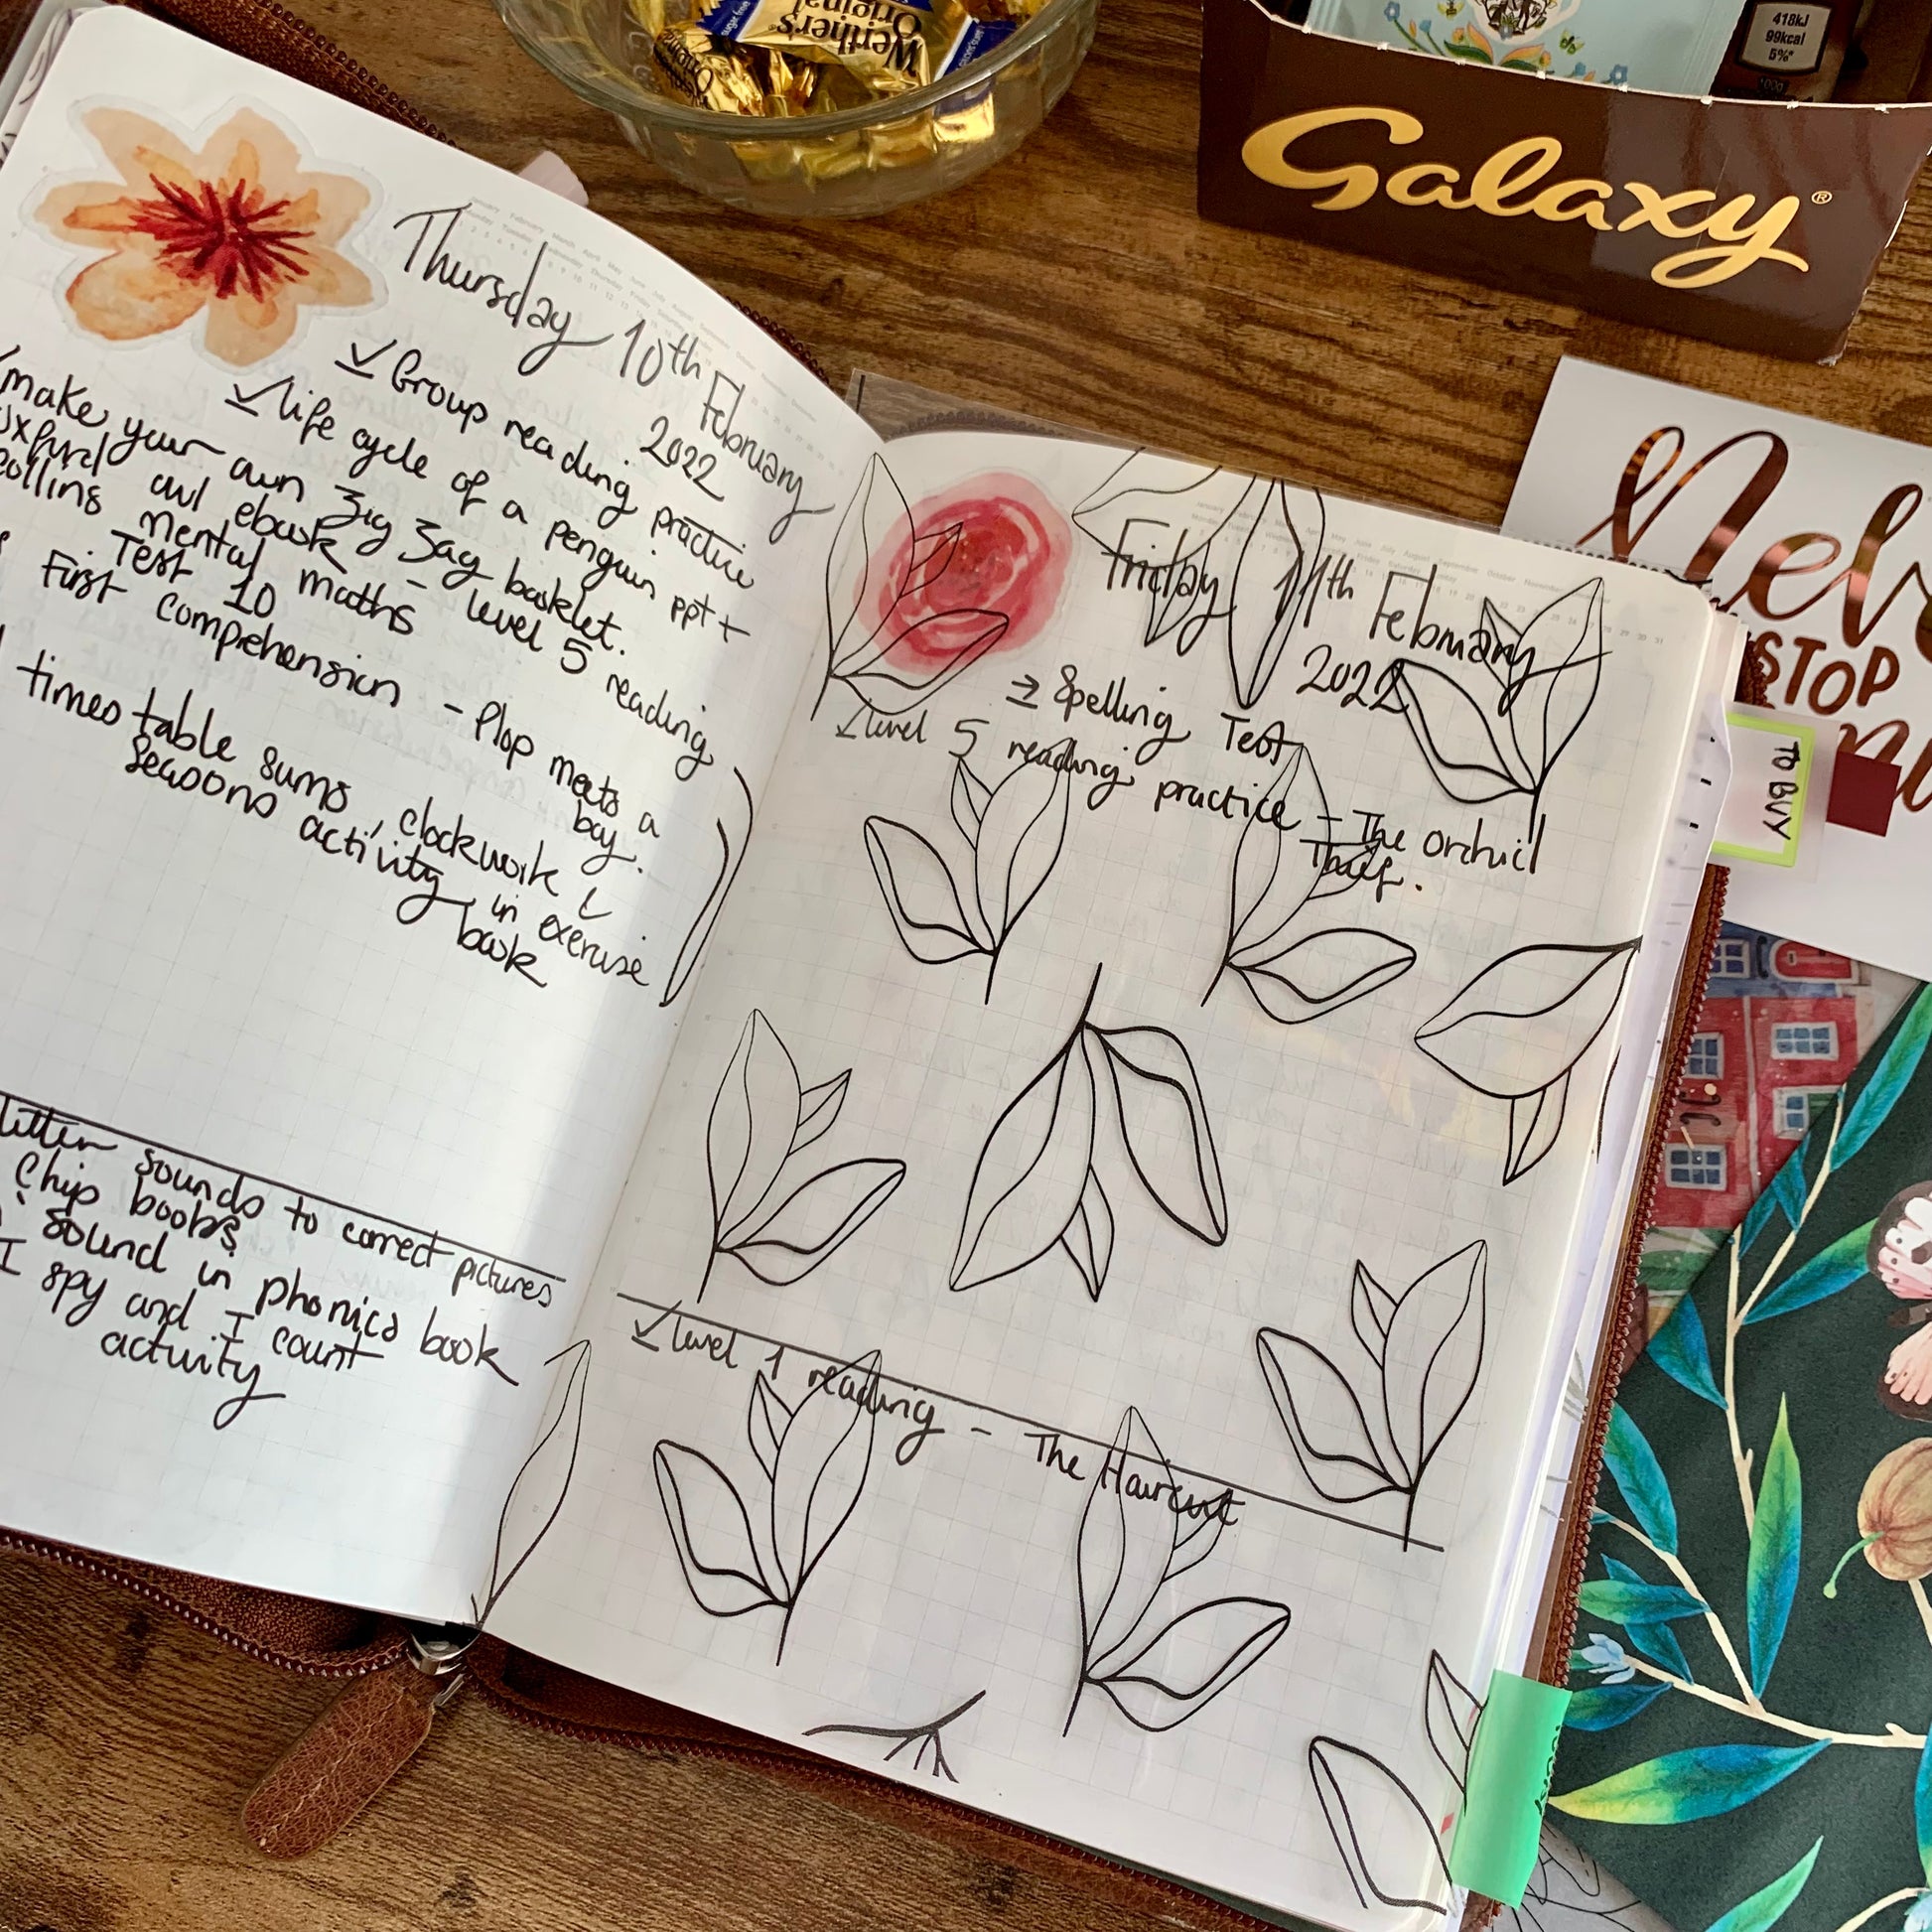 Werther's
Original
sugar free
418kJ
99kcal
5%*
Galaxy®
Thursday 10th February
2022
Group reading practice
life cycle of a penguin ppt +
make your own Zig Zag booklet.
Oxford owl ebook - level 5 reading
Collins Mental maths
Test 10
First comprehension - Plop meets a
boy.
times table sums, clockwork &
seasons activity in exercise
book
letter sounds to correct pictures
Chip books
sound in phonics book
I spy and I count
activity
Friday 11th February
2022
→ Spelling Test
level 5 reading practice - The Orchid
Thief.
level 1 reading - The Haircut
STOP
TO BUY